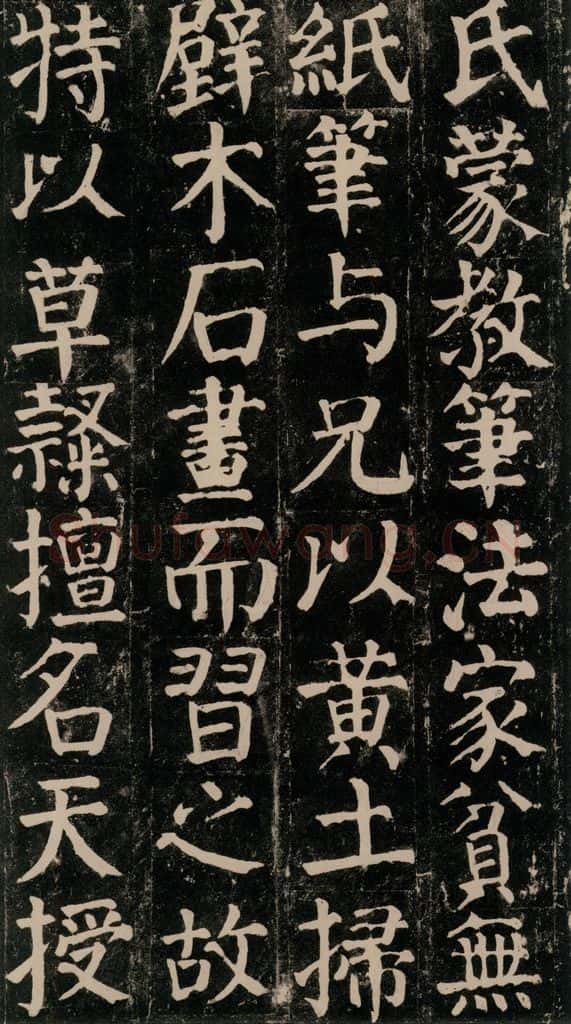 氏蒙教筆法家貧無
紙筆与兄以黄土掃
壁木石畫而習之故
特以草隸擅名天授
Shufawang.CN